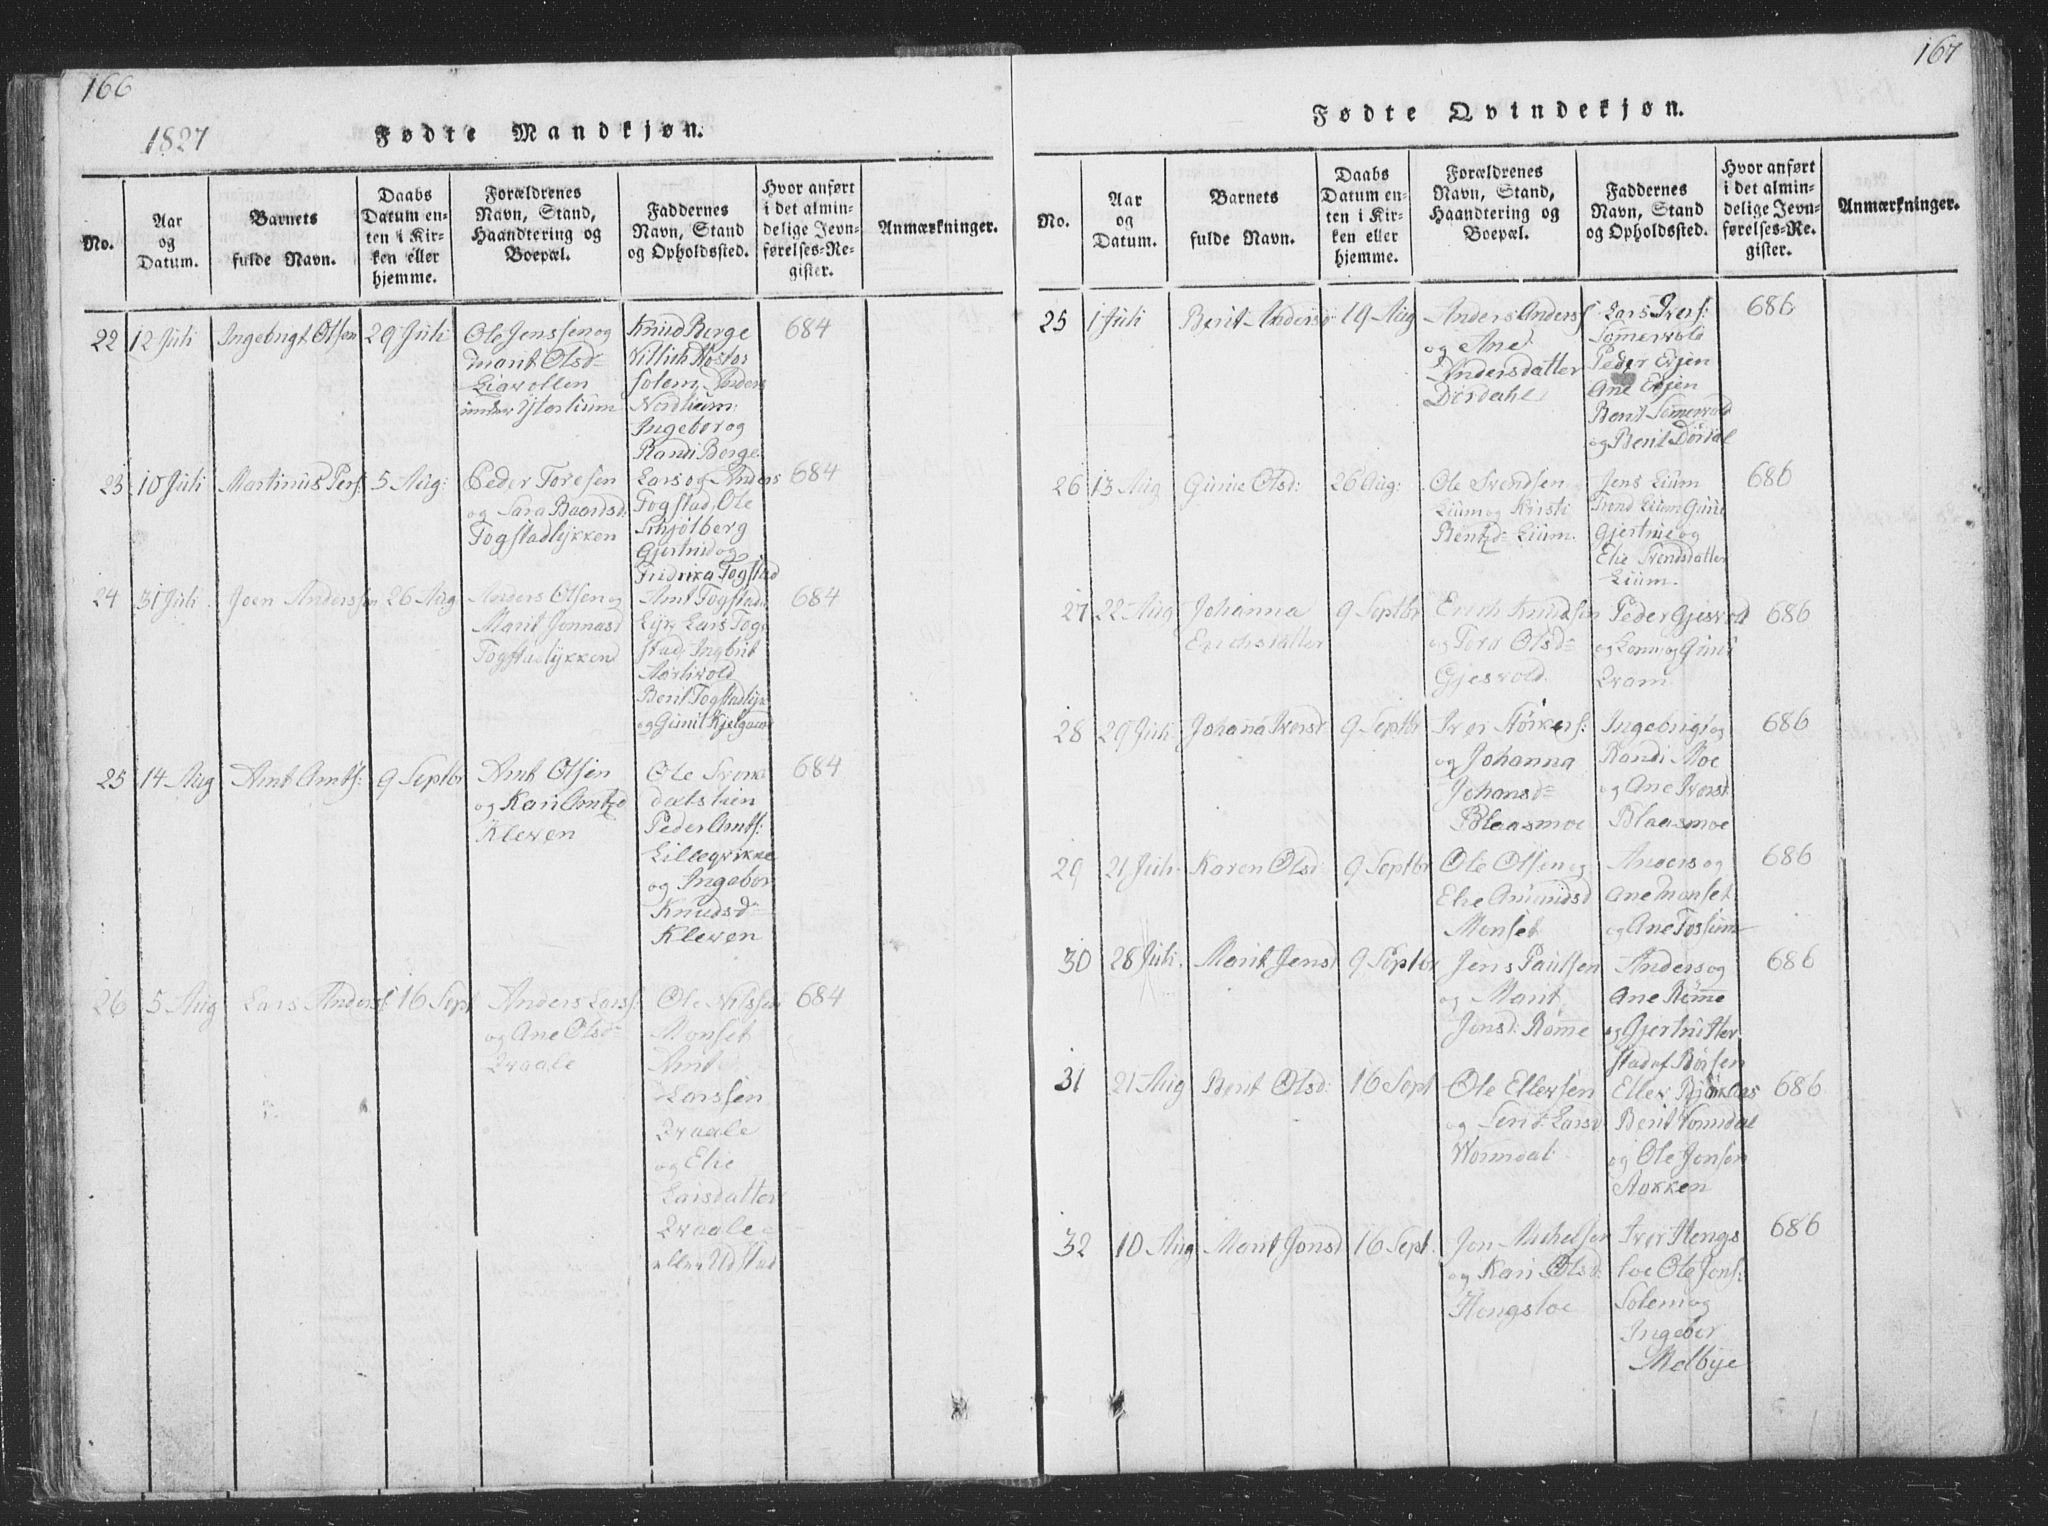 166
1827
Fødte Mandkjøn.
No.
Aar
og
Datum.
Barnets
fulde Navn.
Daabs
Datum en-
ten i Kir-
ken eller
hjemme.
Forældrenes
Navn, Stand,
Haandtering og
Boepæl.
Faddernes
Navn, Stand
og Opholdssted.
Hvor anført
i det almin-
delige Jevn-
førelses-Re-
gister.
Anmærkninger.
22
12 Juli
Ingebrigt Olsen
29 Juli
Ole Jenssen og
Marit Olsd=
Liavollen
under Ysterlium
Knud Berge
Solem Anders
Nordlium:
Ingebor og
Randi Berge
684
23
10 Juli
Martinus Pers:
5 Aug:
Peder Toresen
og Sara Baardsd:
Fogstadlykken
Lars og Anders
Fogstad, Ole
Schjølberg
Gjertrud og
Fridrika Fogstad
684
24
31 Juli
Joen Anderssen
26 Aug
Anders Olsen og
Marit Jonnasd
Fogstadlykken
Arnt Fogstad
Lyk Lars Fog
stad, Ingbrit
Berit Fogstadlyk
og Gunil
684
25
14 Aug
Arnt Arnts:
9 Septbr
Arnt Olsen
og Kari Arntzd
Kleven
Ole Svenk
dalslien
Peder Arnts:
Lillegvikne
og Ingebor
Knudsd=
Kleven
684
26
5 Aug
Lars Anders:
16 Sept
Anders Larss:
og Ane Olsd=
Qvaale
Ole Nilssen
Monset
Arnt
Larssen
Qvaale
og Elie
Larsdatter
Qvaale
684
167
Fødte Qvindekjøn.
No.
Aar
og
Datum.
Barnets
fulde Navn.
Daabs
Datum en-
ten i Kir-
ken eller
hjemme.
Forældrenes
Navn, Stand,
Haandtering og
Boepæl.
Faddernes
Navn, Stand
og Opholdssted.
Hvor anført
i det almin-
delige Jevn-
førelses-Re-
gister.
Anmærkninger.
25
1 Juli
Berit Andersd
19 Aug
Anders Anders:
og Ane
Andersdatter
Dørdahl
Lars Ivers:
Somervold
Peder Evjen
Ane Evjen
Berit Somervold
og Berit Dørdal
686
26
13 Aug
Gunie Olsd:
26 Aug:
Ole Svendsen
Lium og Kristi
Berntzd= Lium.
Jens Lium
Trond Lium Guni
Gjertrue og
Elie Svendsdatter
Lium.
686
27
22 Aug
Johanna
Erichsdatter
9 Septbr
Erich Knudsen
og Tora Olsd=
Gjesvold
Peder Gjesvold
og Guni
Qvam
686
28
29 Juli
Johana Iversd:
9 Septbr
Iver Størkers:
og Johanna
Johansd=
Blaasmoe
Ingebrigt og
Randi Moe
og Ane Iversd:
Blaasmoe
686
29
21 Juli
Karen Olsd:
9 Septbr
Ole Olsen og
Elie Amundsd
Monset
Anders og
Ane Monset
og Ane Foslium
686
30
28 Juli.
Marit Jensd
9 Septbr
Jens Paulsen
og Marit
Jonsd: Røme
Anders og
Ane Røme
og Gjertru Her
stad af Børsen
686
31
21 Aug
Berit Olsd:
16 Sept
Ole Ellevsen
og Larsd
Wormdal
Ellev
Berit Vormdal
og Ole Jonsen
Stokken
686
32
10 Aug
Marit Jonsd
16 Sept.
Jon Michelsen
og Kari Olsd:
Hengsloe
Iver Hengs
loe Ole Jons:
Solem og
Ingebor
Melbye
686